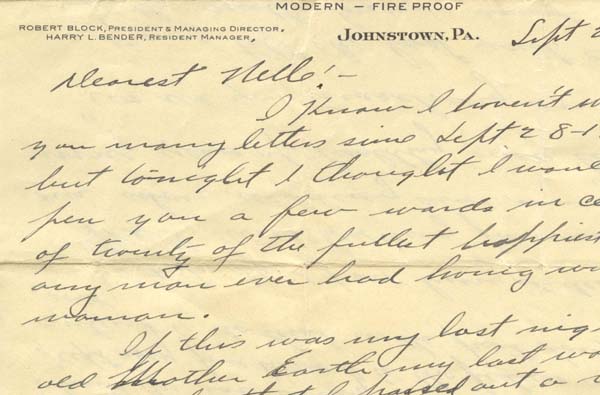 MODERN – FIREPROOF
ROBERT BLOCK, PRESIDENT & MANAGING DIRECTOR.
HARRY L. BENDER, RESIDENT MANAGER.
JOHNSTOWN, PA.
Sept 2
Dearest Nelle! –
I know I haven't w
you many letters since Sept 28 - 1
but tonight I thought I woul
pen you a few words in ce
of twenty of the fullest happies
any man ever had living wi
woman.
If this was my last nig
old Mother Earth my last wo
I passed out a